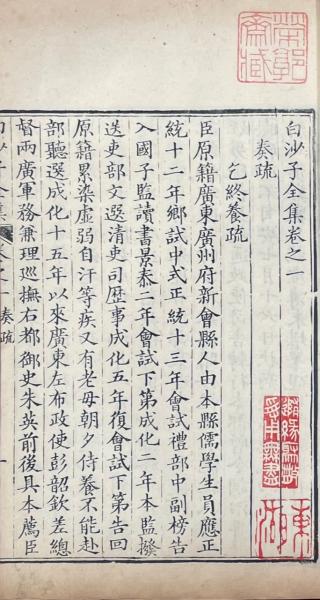 白沙子全集卷之一
奏疏
乞終養疏
臣原籍廣東廣州府新會縣人由本縣儒學生員應正
統十二年鄉試中式正統十三年會試禮部中副榜告
入國子監讀書景泰二年會試下第成化二年本監撥
送吏部文選清吏司歷事成化五年復會試下第告回
原籍累染虛弱自汗等疾又有老母朝夕侍養不能赴
部聽選成化十五年以來廣東左布政使彭韶欽差總
督兩廣軍務兼理巡撫右都御史朱英前後具本薦臣
白沙子全集
卷之一
奏疏
一
東湖